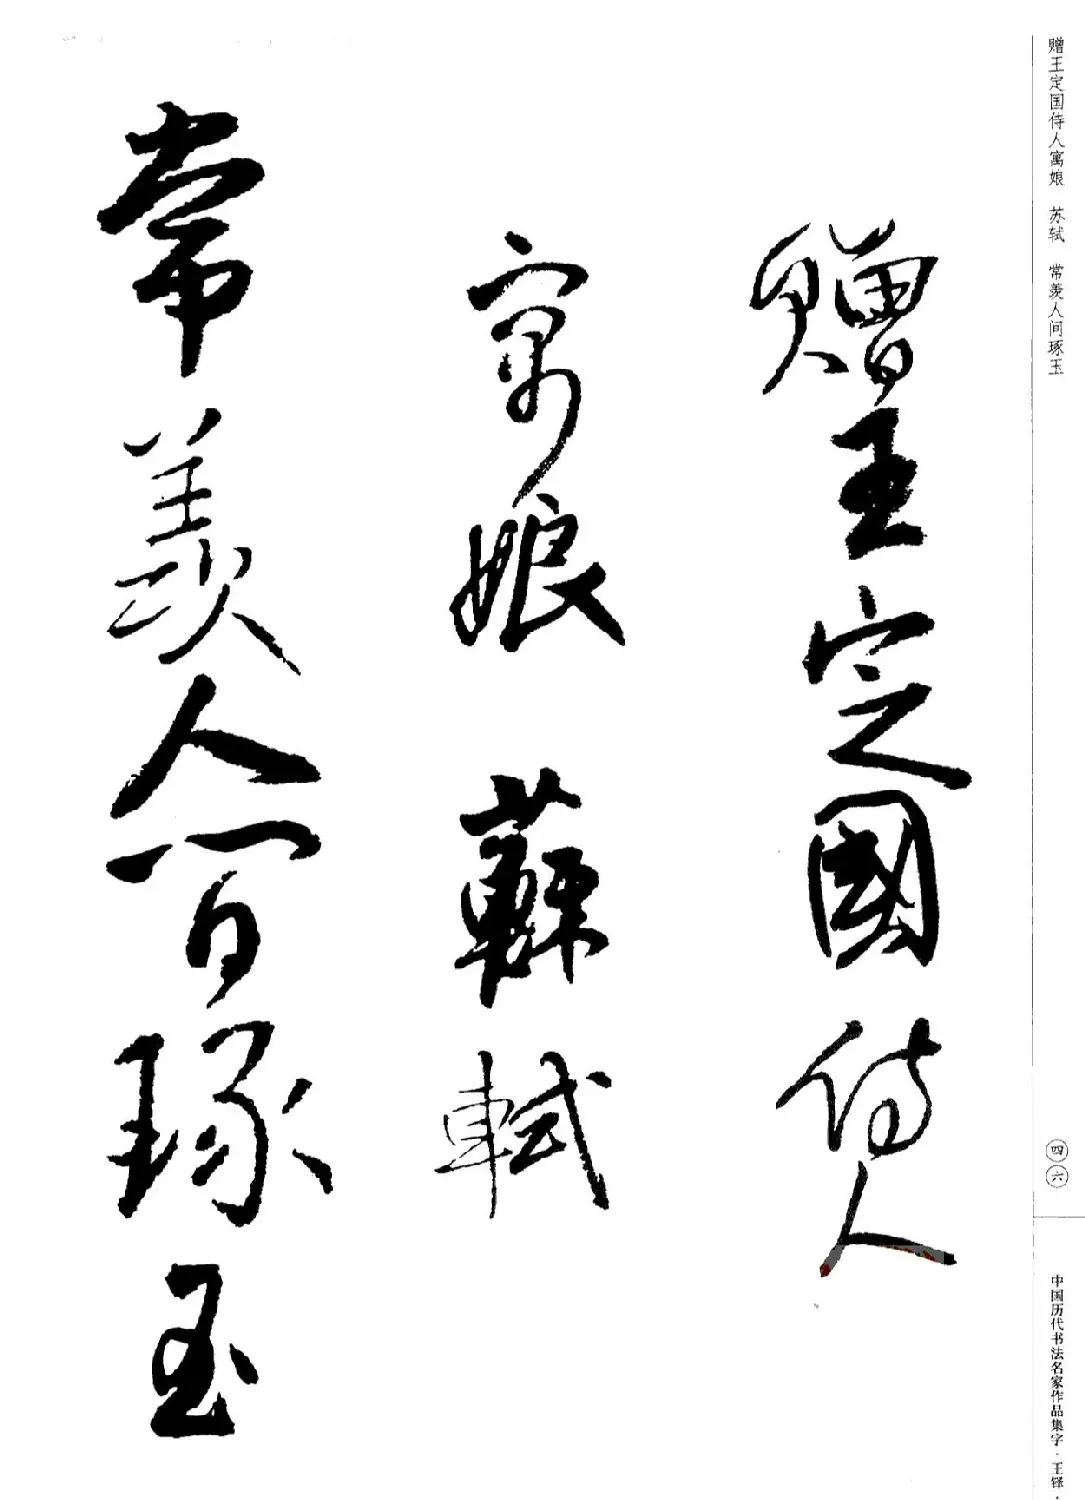 赠王定国侍人寓娘　苏轼　常羡人间琢玉
贈王定國侍人
寓娘　蘇軾
常羨人間琢玉
四六
中国历代书法名家作品集字·王铎·